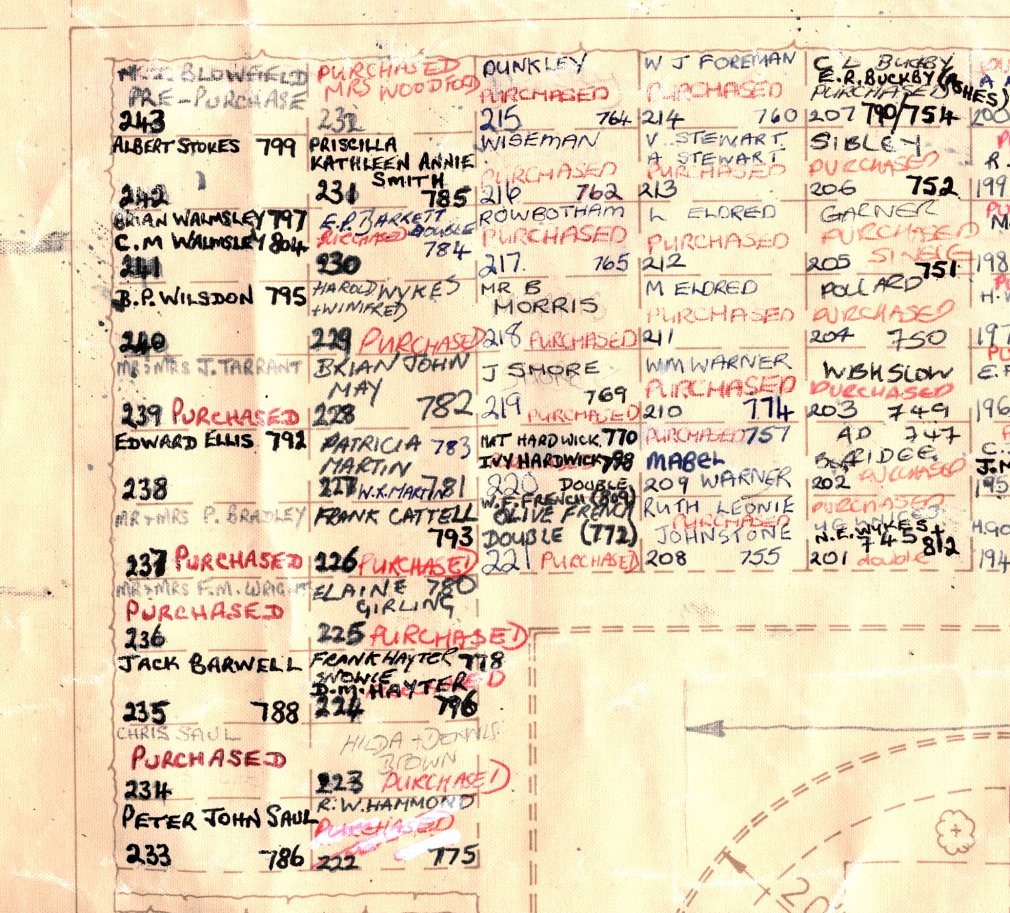 BLOWFIELD
PRE-PURCHASE
243
ALBERT STOKES 799
242
BRIAN WALMSLEY 797
C.M WALMSLEY 804
241
B.P. WILSDON 795
240
MR+MRS J. TARRANT
239 PURCHASED
EDWARD ELLIS 792
238
MR+MRS P. BRADLEY
237 PURCHASED
MR+MRS F.M. WRIGHT
PURCHASED
236
JACK BARWELL
235 788
CHRIS SAUL
PURCHASED
234
PETER JOHN SAUL
233 786
PURCHASED
MRS WOODFORD
232
PRISCILLA
KATHLEEN ANNIE
SMITH
231 785
E.P. BARKETT
PURCHASED DOUBLE
784
230
HAROLD WYKES
+WINIFRED
229 PURCHASED
BRIAN JOHN
MAY
228 782
PATRICIA 783
MARTIN
227 W.X. MARTIN 781
FRANK CATTELL
793
226 PURCHASED
ELAINE 780
GIRLING
225 PURCHASED
FRANK HAYTER 778
SNOWIE
D.M. HAYTER
224 796
HILDA + DENNIS
BROWN
223 PURCHASED
R.W. HAMMOND
PURCHASED
222 775
DUNKLEY
PURCHASED
215 764
WISEMAN
PURCHASED
216 762
ROWBOTHAM
PURCHASED
217. 765
MR B
MORRIS
218 PURCHASED
J SHORE
769
219 PURCHASED
NAT HARDWICK 770
IVY HARDWICK 798
220 DOUBLE
W.E. FRENCH (809)
OLIVE FRENCH
DOUBLE (772)
221 PURCHASED
W J FOREMAN
PURCHASED
214 760
V. STEWART
A STEWART
PURCHASED
213
L ELDRED
PURCHASED
212
M ELDRED
PURCHASED
211
WM WARNER
PURCHASED
210 774
PURCHASED 757
MABEL
209 WARNER
RUTH LEONIE
PURCHASED
JOHNSTONE
208 755
C L BUCKBY
E.R. BUCKBY (ASHES)
PURCHASED
207 790/754
SIBLEY
PURCHASED
206 752
GARNER
PURCHASED
SINGLE
205 751
POLLARD
PURCHASED
204 750
WINSLOW
PURCHASED
203 749
AD 747
202 PURCHASED
PURCHASED
N.E. WYKES+
745 812
201 double
200
199
198
197
196
195
194
20